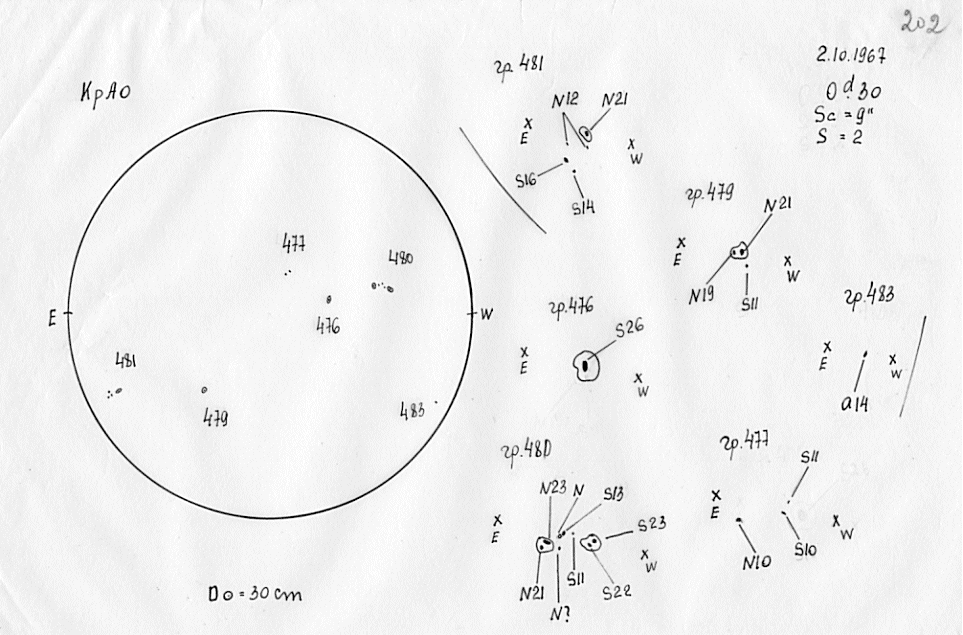 202
КрАО
2.10.1967
0 d. 30
Sc = 9"
S = 2
гр. 481
N12
N21
x
E
x
W
S16
S14
гр. 479
N21
x
E
x
W
N19
S11
гр. 476
S26
x
E
x
W
гр. 483
x
E
x
W
a14
гр. 480
N23
N
S13
S23
x
E
x
W
N21
S11
S22
N?
гр. 477
S11
x
E
x
W
N10
S10
477
480
476
E
W
481
479
483
D⊙ = 30 cm